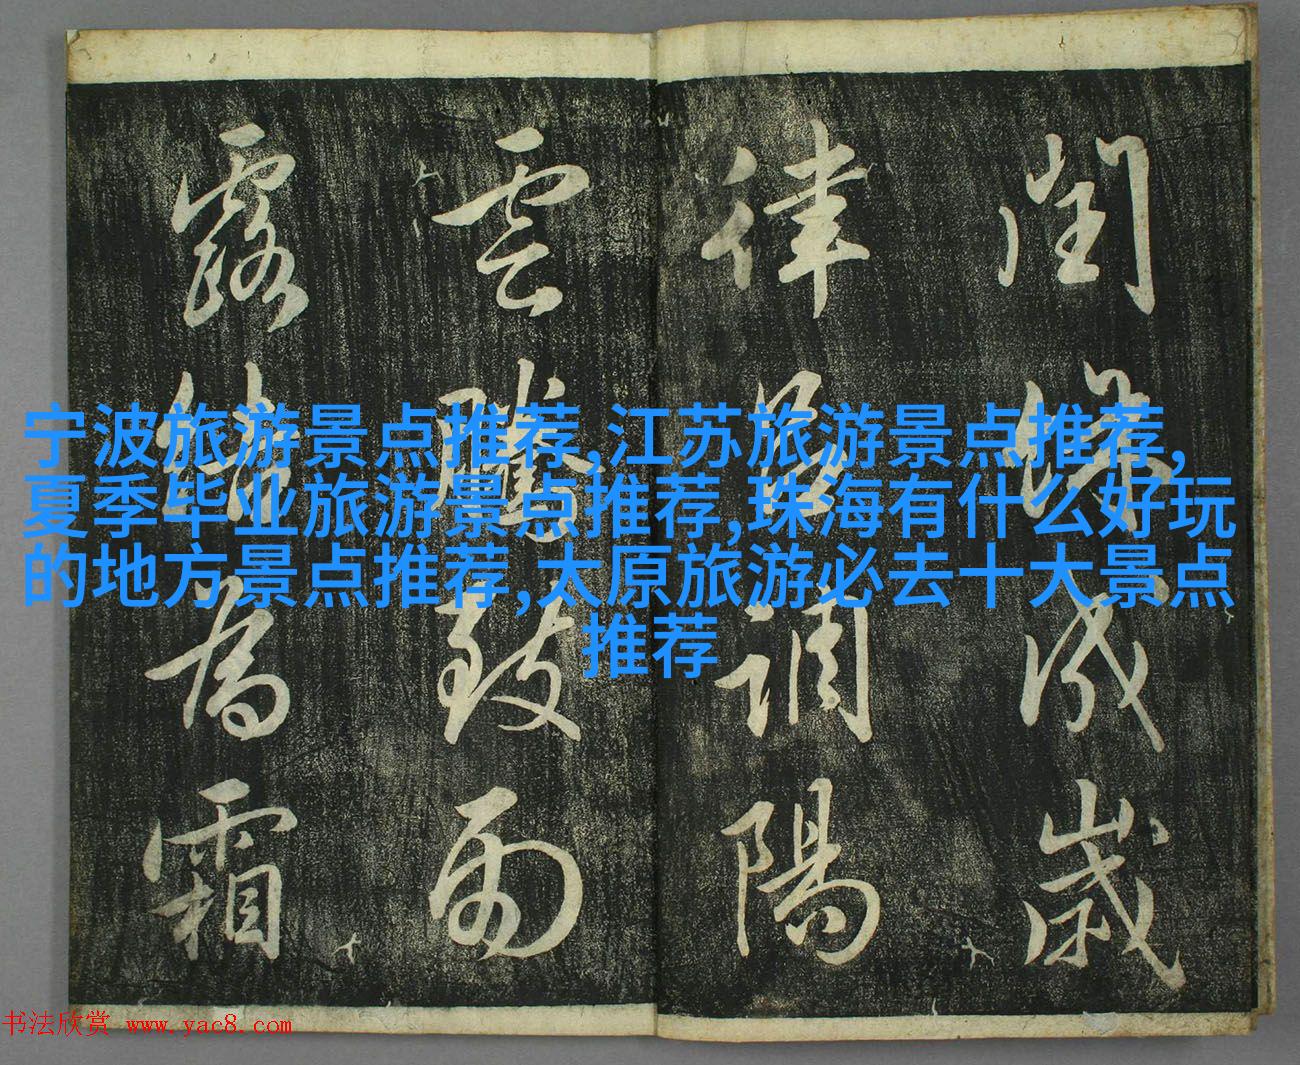 閏餘成歲
律呂調陽
雲騰致雨
露結為霜
宁波旅游景点推荐,江苏旅游景点推荐,
夏季毕业旅游景点推荐,珠海有什么好玩
的地方景点推荐,太原旅游必去十大景点
推荐
书法欣赏 www.yac8.com